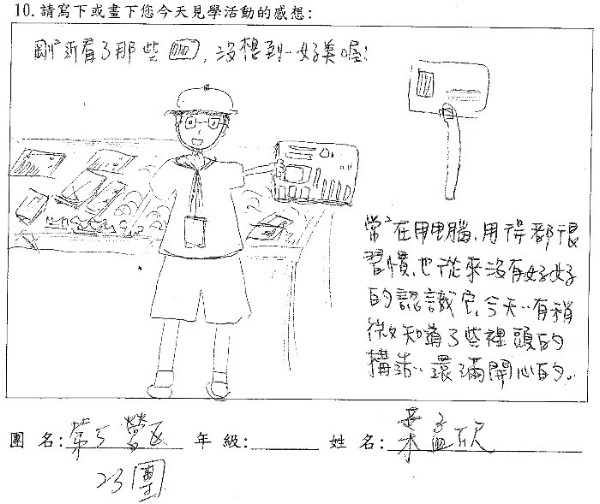 10.請寫下或畫下您今天見學活動的感想:
剛才看了那些 ，沒想到一好美喔!
常在用电腦,用得都很
習慣,也從來沒有好好
的認識它,今天‥有稍
微知道了些裡頭的
構造‥還滿開心的..
團 名:第 營区 年 級: 姓 名:葉孟欣
23團